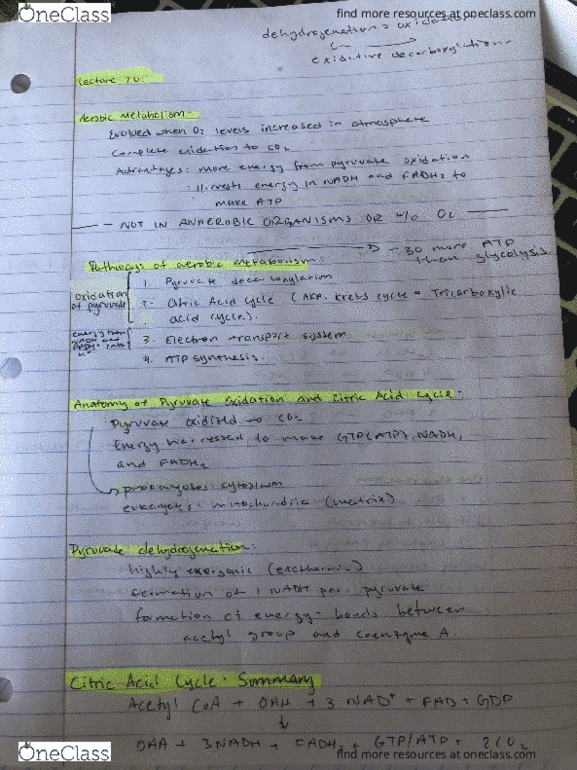 OneClass
find more resources at oneclass.com
dehydrogenation = oxidation
oxidative decarboxylation
Lecture 20:
Aerobic metabolism.
Evolved when O2 levels increased in atmosphere
Complete oxidation to CO2
Advantages: more energy from pyruvate oxidation
: Harvests energy in NADH and FADH2 to
make ATP
NOT IN ANAEROBIC ORGANISMS OR W/O O2
Pathways of aerobic metabolism:
~30 more ATP
than glycolysis
oxidation
of pyruvate
1. Pyruvate decarboxylation
2. Citric Acid Cycle (AKA. Krebs cycle = Tricarboxylic
acid cycle).
3. Electron transport system
4. ATP synthesis.
Anatomy of Pyruvate Oxidation and Citric Acid Cycle.
Pyruvate oxidized → CO2
Energy harnessed to make GTP(ATP), NADH,
and FADH2
prokaryotes: cytoplasm
eukaryotes: mitochondria (matrix)
Pyruvate dehydrogenation:
highly exergonic (exothermic)
formation of 1 NADH per pyruvate
formation of energy-bonds between
acetyl group and coenzyme A.
Citric Acid Cycle: Summary
Acetyl CoA + OAA + 3 NAD+ + FAD + GDP
↓
OAA + 3NADH + FADH2 + GTP/ATP + 2CO2
OneClass
find more resources at oneclass.com